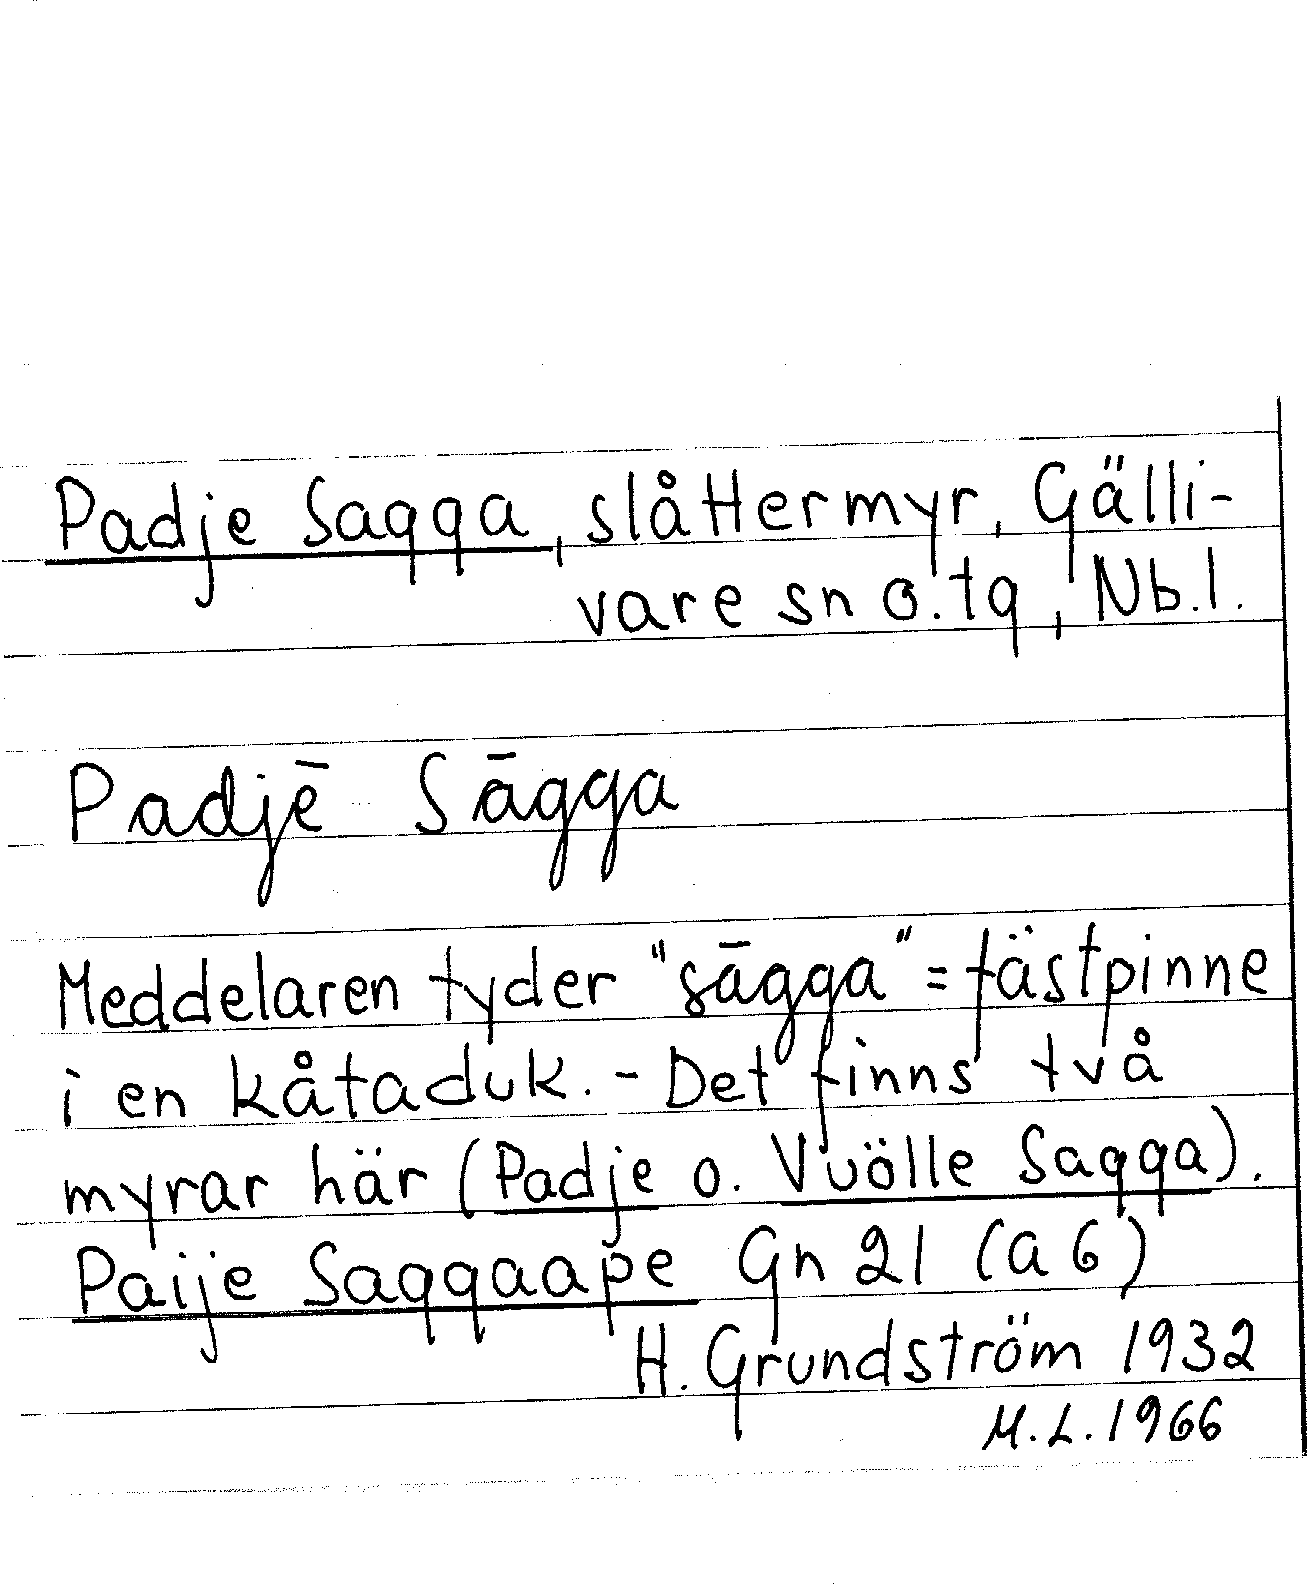 Padje Sagga, slåttermyr, Gälli-
vare sn o. tg, Nb. l.
Padjē Sāgga
Meddelaren tyder "sāgga" = fästpinne
i en kåtaduk. - Det finns två
myrar här (Padje o. Vuölle Sagga).
Paije Saggaape Gn 21 (a 6)
H. Grundström 1932
M. L. 1966